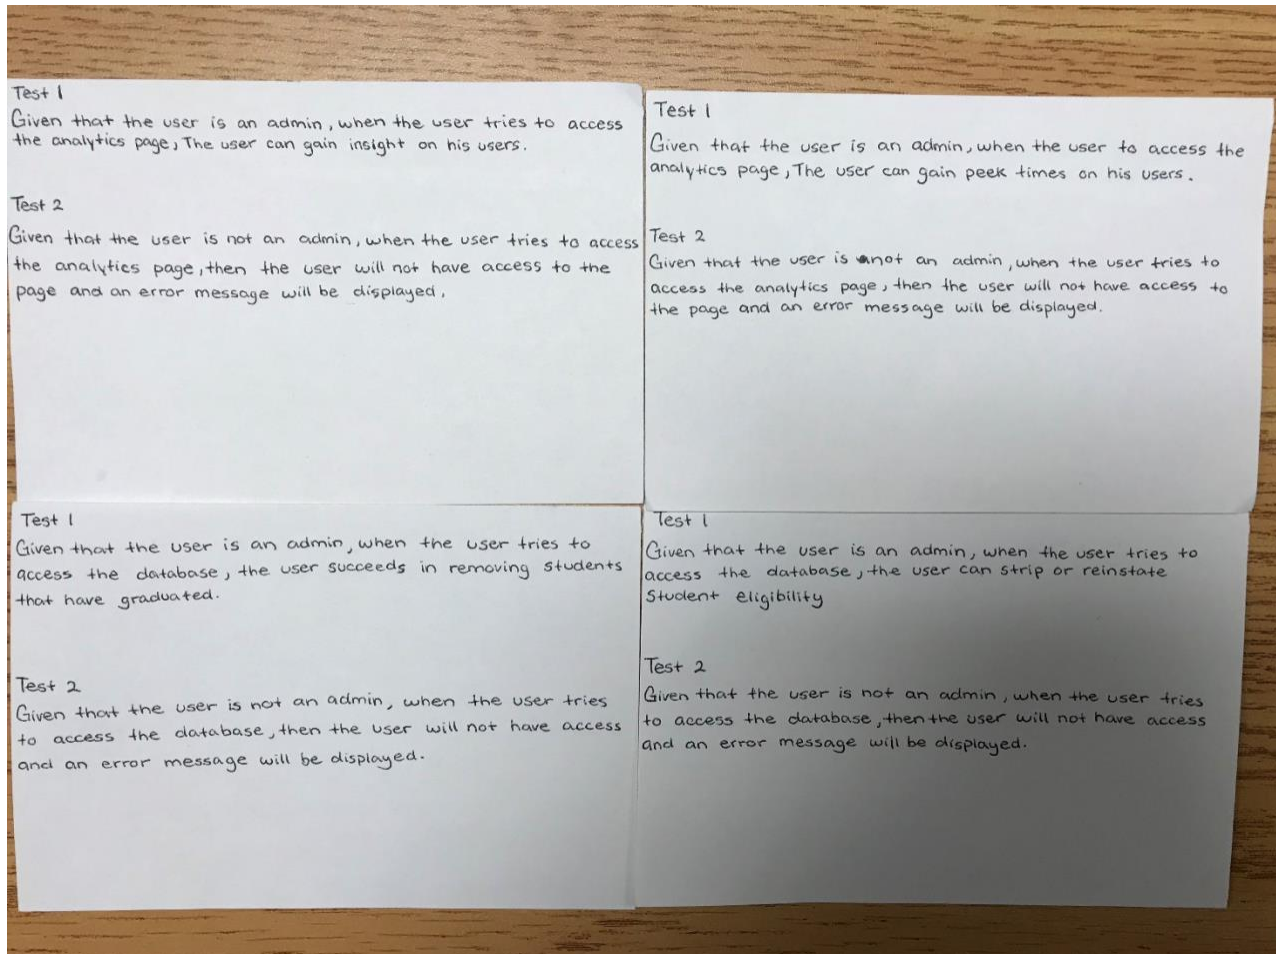 Test 1
Given that the user is an admin, when the user tries to access
the analytics page, The user can gain insight on his users.
Test 2
Given that the user is not an admin, when the user tries to access
the analytics page, then the user will not have access to the
page and an error message will be displayed.
Test 1
Given that the user is an admin, when the user to access the
analytics page, The user can gain peek times on his users.
Test 2
Given that the user is not an admin, when the user tries to
access the analytics page, then the user will not have access to
the page and an error message will be displayed.
Test 1
Given that the user is an admin, when the user tries to
access the database, the user succeeds in removing students
that have graduated.
Test 2
Given that the user is not an admin, when the user tries
to access the database, then the user will not have access
and an error message will be displayed.
Test 1
Given that the user is an admin, when the user tries to
access the database, the user can strip or reinstate
Student eligibility
Test 2
Given that the user is not an admin, when the user tries
to access the database, then the user will not have access
and an error message will be displayed.